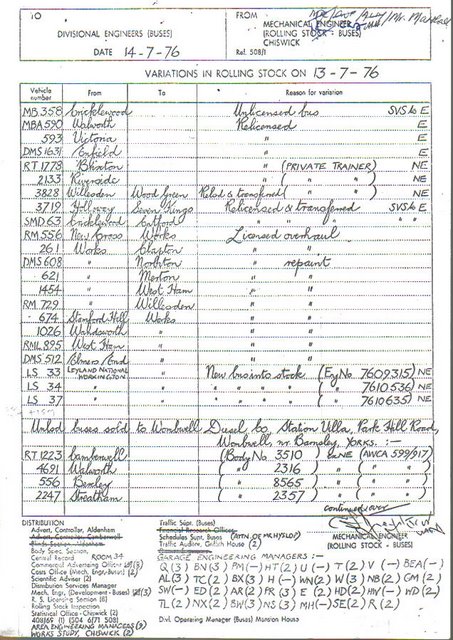 TO
DIVISIONAL ENGINEERS (BUSES)
DATE 14-7-76
FROM
MECHANICAL ENGINEER
(ROLLING STOCK - BUSES)
CHISWICK
Ref. 508/1
VARIATIONS IN ROLLING STOCK ON 13-7-76
Vehicle number From To Reason for variation
MB 358 Cricklewood Unlicensed bus SVS to E
MBA 590 Walworth Relicensed E
593 Victoria " E
DMS 1631 Enfield " E
RT 1778 Brixton " (PRIVATE TRAINER) NE
2133 Riverside " ( " " ) NE
3828 Willesden Wood Green Relsd & transferred ( " " ) NE
3719 Holloway Seven Kings Relicensed & transferred SVS to E
SMD 63 Cricklewood Catford " " " "
RM 556 New Cross Works Licensed overhaul
261 Works Clapton " "
DMS 608 " Norbiton " repaint
621 " Merton " "
1454 " West Ham " "
RM 729 " Willesden " "
674 Stamford Hill Works " "
1026 Wandsworth " " "
RML 895 West Ham " " "
DMS 512 Elmers End " " "
LS 33 LEYLAND NATIONAL WORKINGTON New bus into stock (Eng No 7609315) NE
LS 34 " " " " " ( " 7610536) NE
LS 37 " " " " " ( " 7610635) NE
Unlsd buses sold to Wombwell Diesel Co, Station Villa, Park Hill Road,
Wombwell, nr Barnsley, YORKS. :-
RT 1223 Camberwell (Body No 3510) LANE (AWCA 599/917)
4691 Walworth ( " 2316 ) " ( " " )
556 Bexley ( " 8565 ) " ( " " )
2247 Streatham ( " 2357 ) " ( " " )
continued over
MECHANICAL ENGINEER
(ROLLING STOCK - BUSES)
DISTRIBUTION
Advert. Controller, Aldenham
Advert. Controller, Camberwell
Body Spec. Section,
Central Record ROOM 34
Commercial Advertising Officer
Costs Office (Mech. Engr.-Buses) (2)
Scientific Adviser (2)
Distribution Services Manager
Mech. Engr. (Development - Buses)
R. S. Licensing Section (8)
Rolling Stock Inspection
Statistical Office - Chiswick (2)
AREA ENGINEERING MANAGERS
WORKS STUDY, CHISWICK (2)
Traffic Supt. (Buses)
Financial Research Officer
Schedules Supt. (Buses)
Traffic Auditor, Griffith House (2)
GARAGE ENGINEERING MANAGERS :-
Q (3) BN (3) PM (-) HT (2) U (-) T (2) V (-) BEA (-)
AL (3) TC (2) BX (3) H (-) WN (2) W (3) NB (2) GM (2)
SW (-) ED (2) AR (2) PR (3) E (2) HD (2) HV (-) WD (2)
TL (2) NX (2) BW (3) NS (3) MH (-) SE (2) R (2)
Divl. Operating Manager (Buses) Mansion House